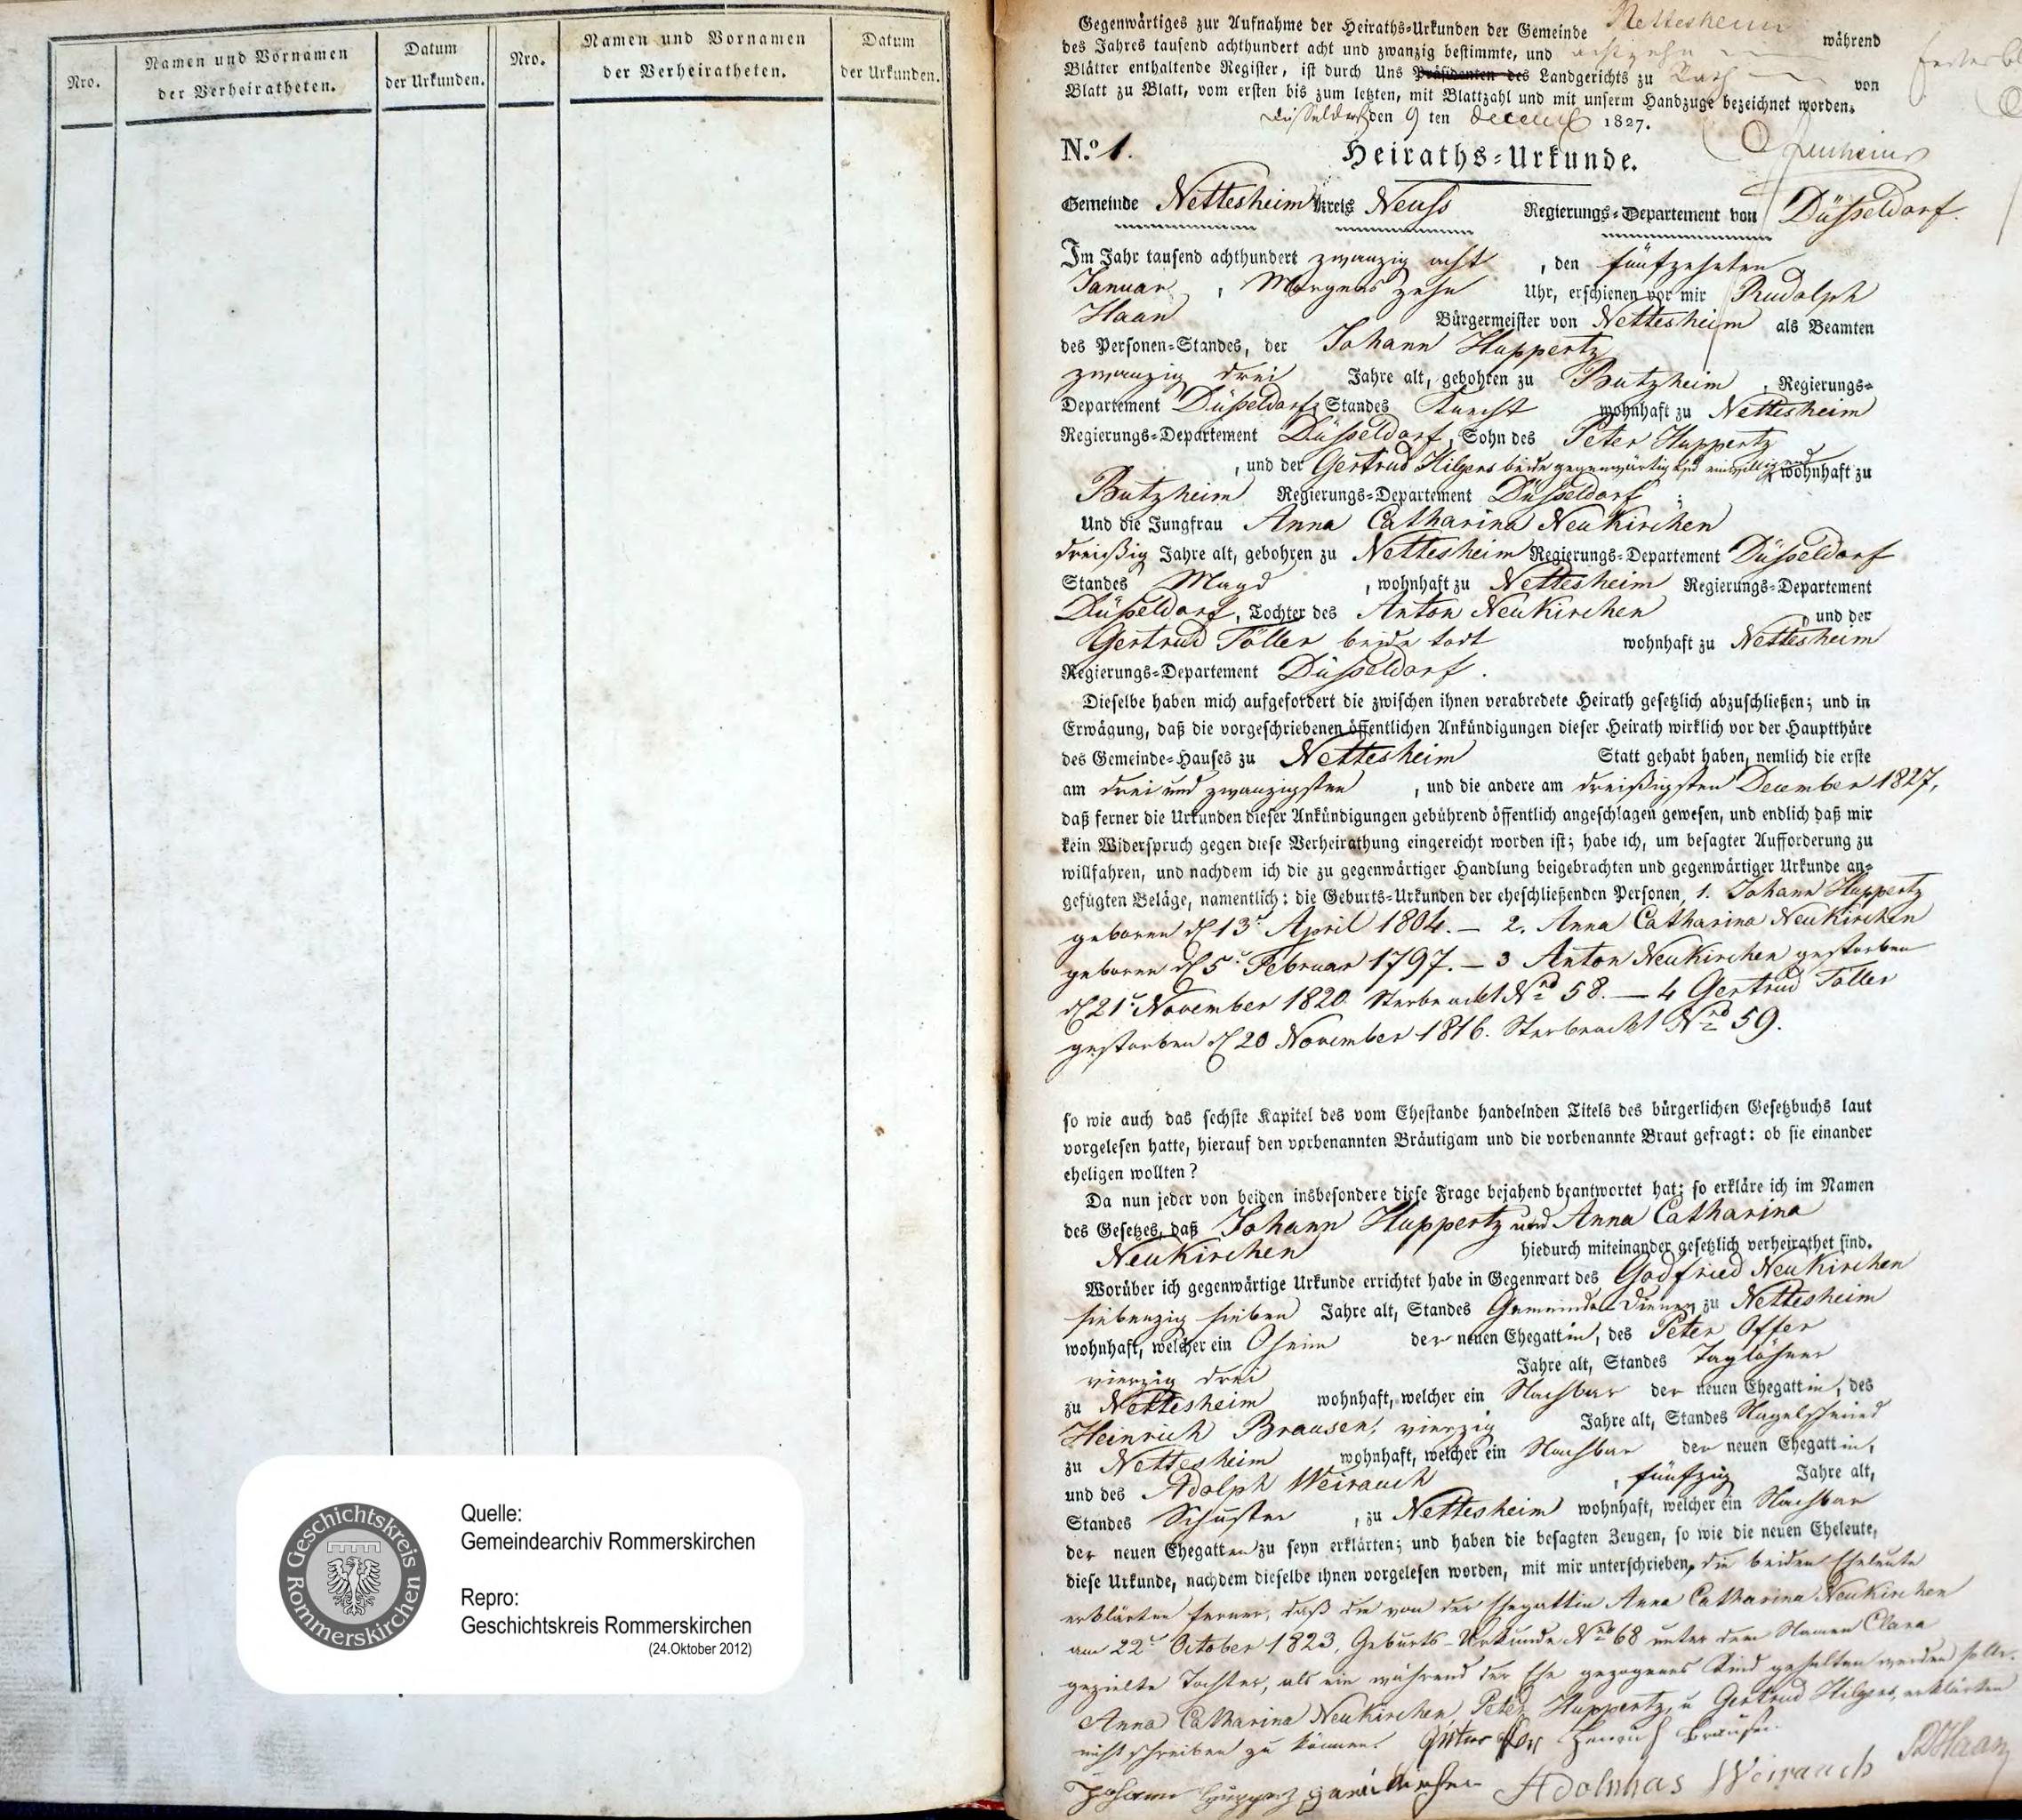 Nro.
Namen und Vornamen
der Verheiratheten.
Datum
der Urkunden.
Nro.
Namen und Vornamen
der Verheiratheten.
Datum
der Urkunden.
Quelle:
Gemeindearchiv Rommerskirchen
Repro:
Geschichtskreis Rommerskirchen
(24.Oktober 2012)
Geschichtskreis Rommerskirchen
Gegenwärtiges zur Aufnahme der Heiraths-Urkunden der Gemeinde Nettesheim während
des Jahres tausend achthundert acht und zwanzig bestimmte, und achtzehn
Blätter enthaltende Register, ist durch Uns Präsidenten des Landgerichts zu von
Blatt zu Blatt, vom ersten bis zum letzten, mit Blattzahl und mit unserm Handzuge bezeichnet worden.
Düsseldorf den 9 ten 1827.
N.o 1. Heiraths-Urkunde.
Gemeinde Nettesheim Kreis Neuss Regierungs-Departement von Düsseldorf.
Im Jahr tausend achthundert zwanzig acht , den fünfzehnten
Januar , Morgens zehn Uhr, erschienen vor mir Rudolph
Haan Bürgermeister von Nettesheim als Beamten
des Personen-Standes, der Johann Huppertz
zwanzig drei Jahre alt, gebohren zu Butzheim , Regierungs-
Departement Düsseldorf, Standes Knecht wohnhaft zu Nettesheim
Regierungs-Departement Düsseldorf, Sohn des Peter Huppertz
, und der Gertrud Hilgers beide gegenwärtig und einwilligend wohnhaft zu
Butzheim Regierungs-Departement Düsseldorf ;
Und die Jungfrau Anna Catharina Neukirchen
dreißig Jahre alt, gebohren zu Nettesheim Regierungs-Departement Düsseldorf
Standes Magd , wohnhaft zu Nettesheim Regierungs-Departement
Düsseldorf, Tochter des Anton Neukirchen , und der
Gertrud Töller beide todt wohnhaft zu Nettesheim
Regierungs-Departement Düsseldorf.
Dieselbe haben mich aufgefordert die zwischen ihnen verabredete Heirath gesetzlich abzuschließen; und in
Erwägung, daß die vorgeschriebenen öffentlichen Ankündigungen dieser Heirath wirklich vor der Hauptthüre
des Gemeinde-Hauses zu Nettesheim Statt gehabt haben, nemlich die erste
am drei und zwanzigsten , und die andere am dreißigsten December 1827,
daß ferner die Urkunden dieser Ankündigungen gebührend öffentlich angeschlagen gewesen, und endlich daß mir
kein Widerspruch gegen diese Verheirathung eingereicht worden ist; habe ich, um besagter Aufforderung zu
willfahren, und nachdem ich die zu gegenwärtiger Handlung beigebrachten und gegenwärtiger Urkunde an-
gefügten Beläge, namentlich: die Geburts-Urkunden der eheschließenden Personen, 1. Johann Huppertz
geboren d 13t April 1804. — 2. Anna Catharina Neukirchen
geboren d 5t Februar 1797. — 3 Anton Neukirchen gestorben
d 21t November 1820. Sterbeackt Nro 58. — 4 Gertrud Töller
gestorben d 20 November 1816. Sterbeackt Nro 59.
so wie auch das sechste Kapitel des vom Ehestande handelnden Titels des bürgerlichen Gesetzbuchs laut
vorgelesen hatte, hierauf den vorbenannten Bräutigam und die vorbenannte Braut gefragt: ob sie einander
eheligen wollten?
Da nun jeder von beiden insbesondere diese Frage bejahend beantwortet hat; so erkläre ich im Namen
des Gesetzes, daß Johann Huppertz und Anna Catharina
Neukirchen hiedurch miteinander gesetzlich verheirathet sind.
Worüber ich gegenwärtige Urkunde errichtet habe in Gegenwart des Godfried Neukirchen
siebenzig sieben Jahre alt, Standes Gemeinde-Diener, zu Nettesheim
wohnhaft, welcher ein Oheim der neuen Ehegattin, des Peter Offer
vierzig drei Jahre alt, Standes Taglöhner
zu Nettesheim wohnhaft, welcher ein Nachbar der neuen Ehegattin, des
Heinrich Brausen, vierzig Jahre alt, Standes Nagelschmied
zu Nettesheim wohnhaft, welcher ein Nachbar der neuen Ehegattin,
und des Adolph Weirauch , fünfzig Jahre alt,
Standes Schuster , zu Nettesheim wohnhaft, welcher ein Nachbar
der neuen Ehegatten zu seyn erklärten; und haben die besagten Zeugen, so wie die neuen Eheleute,
diese Urkunde, nachdem dieselbe ihnen vorgelesen worden, mit mir unterschrieben, die beiden Eheleute
erklärten ferner, daß die von der Ehegattin Anna Catharina Neukirchen
am 22t October 1823, Geburts-Urkunde Nro 68 unter dem Namen Clara
gezielte Tochter, als ein während der Ehe gezogenes Kind gehalten werden solle.
Anna Catharina Neukirchen, Peter Huppertz, u Gertrud Hilgers, erklärten
nicht schreiben zu können.
Adolphas Weirauch RHaan